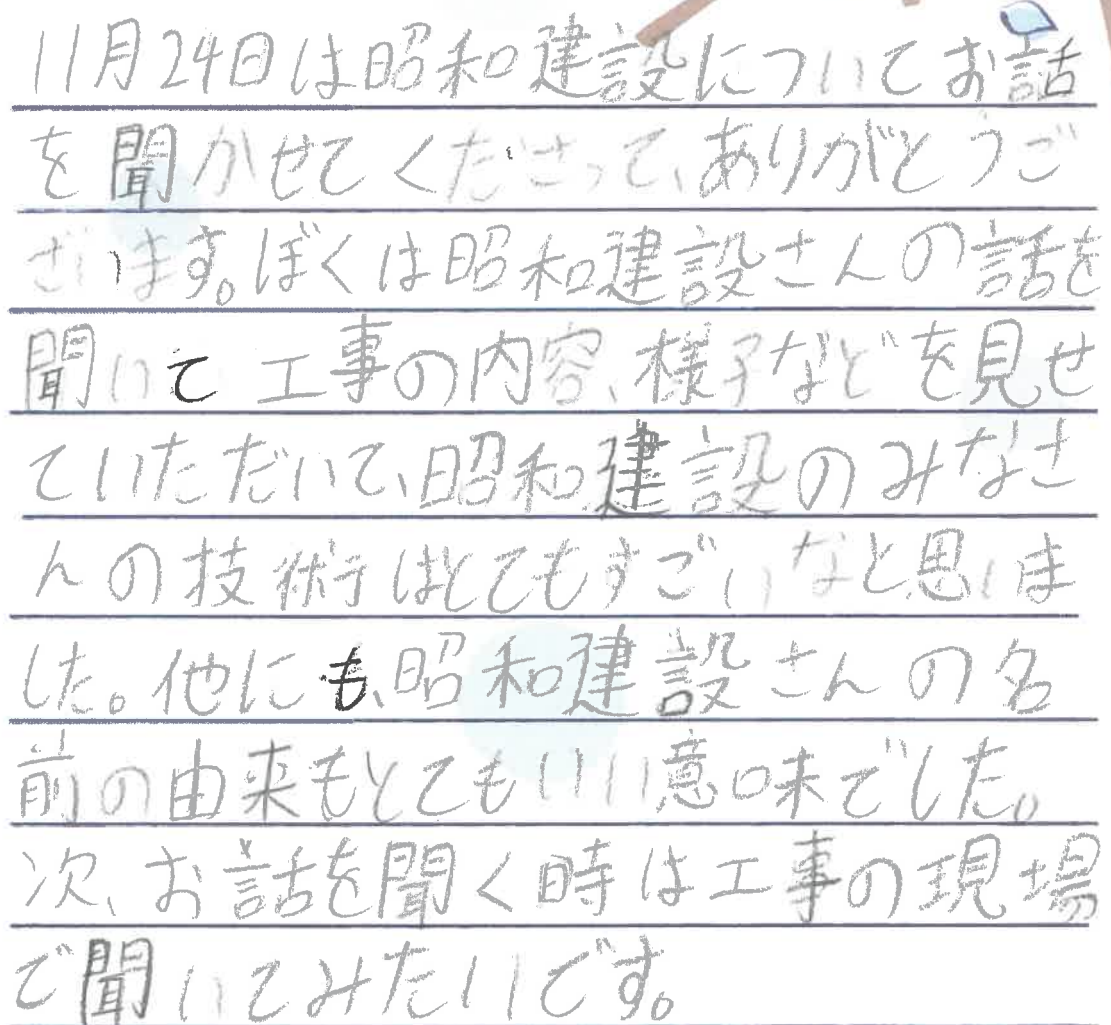 11月24日は昭和建設についてお話
を聞かせてくださって、ありがとうご
ざいます。ぼくは昭和建設さんの話を
聞いて工事の内容、様子などを見せ
ていただいて、昭和建設のみなさ
んの技術はとてもすごいなと思いま
した。他にも、昭和建設さんの名
前の由来もとてもいい意味でした。
次、お話を聞く時は工事の現場
で聞いてみたいです。